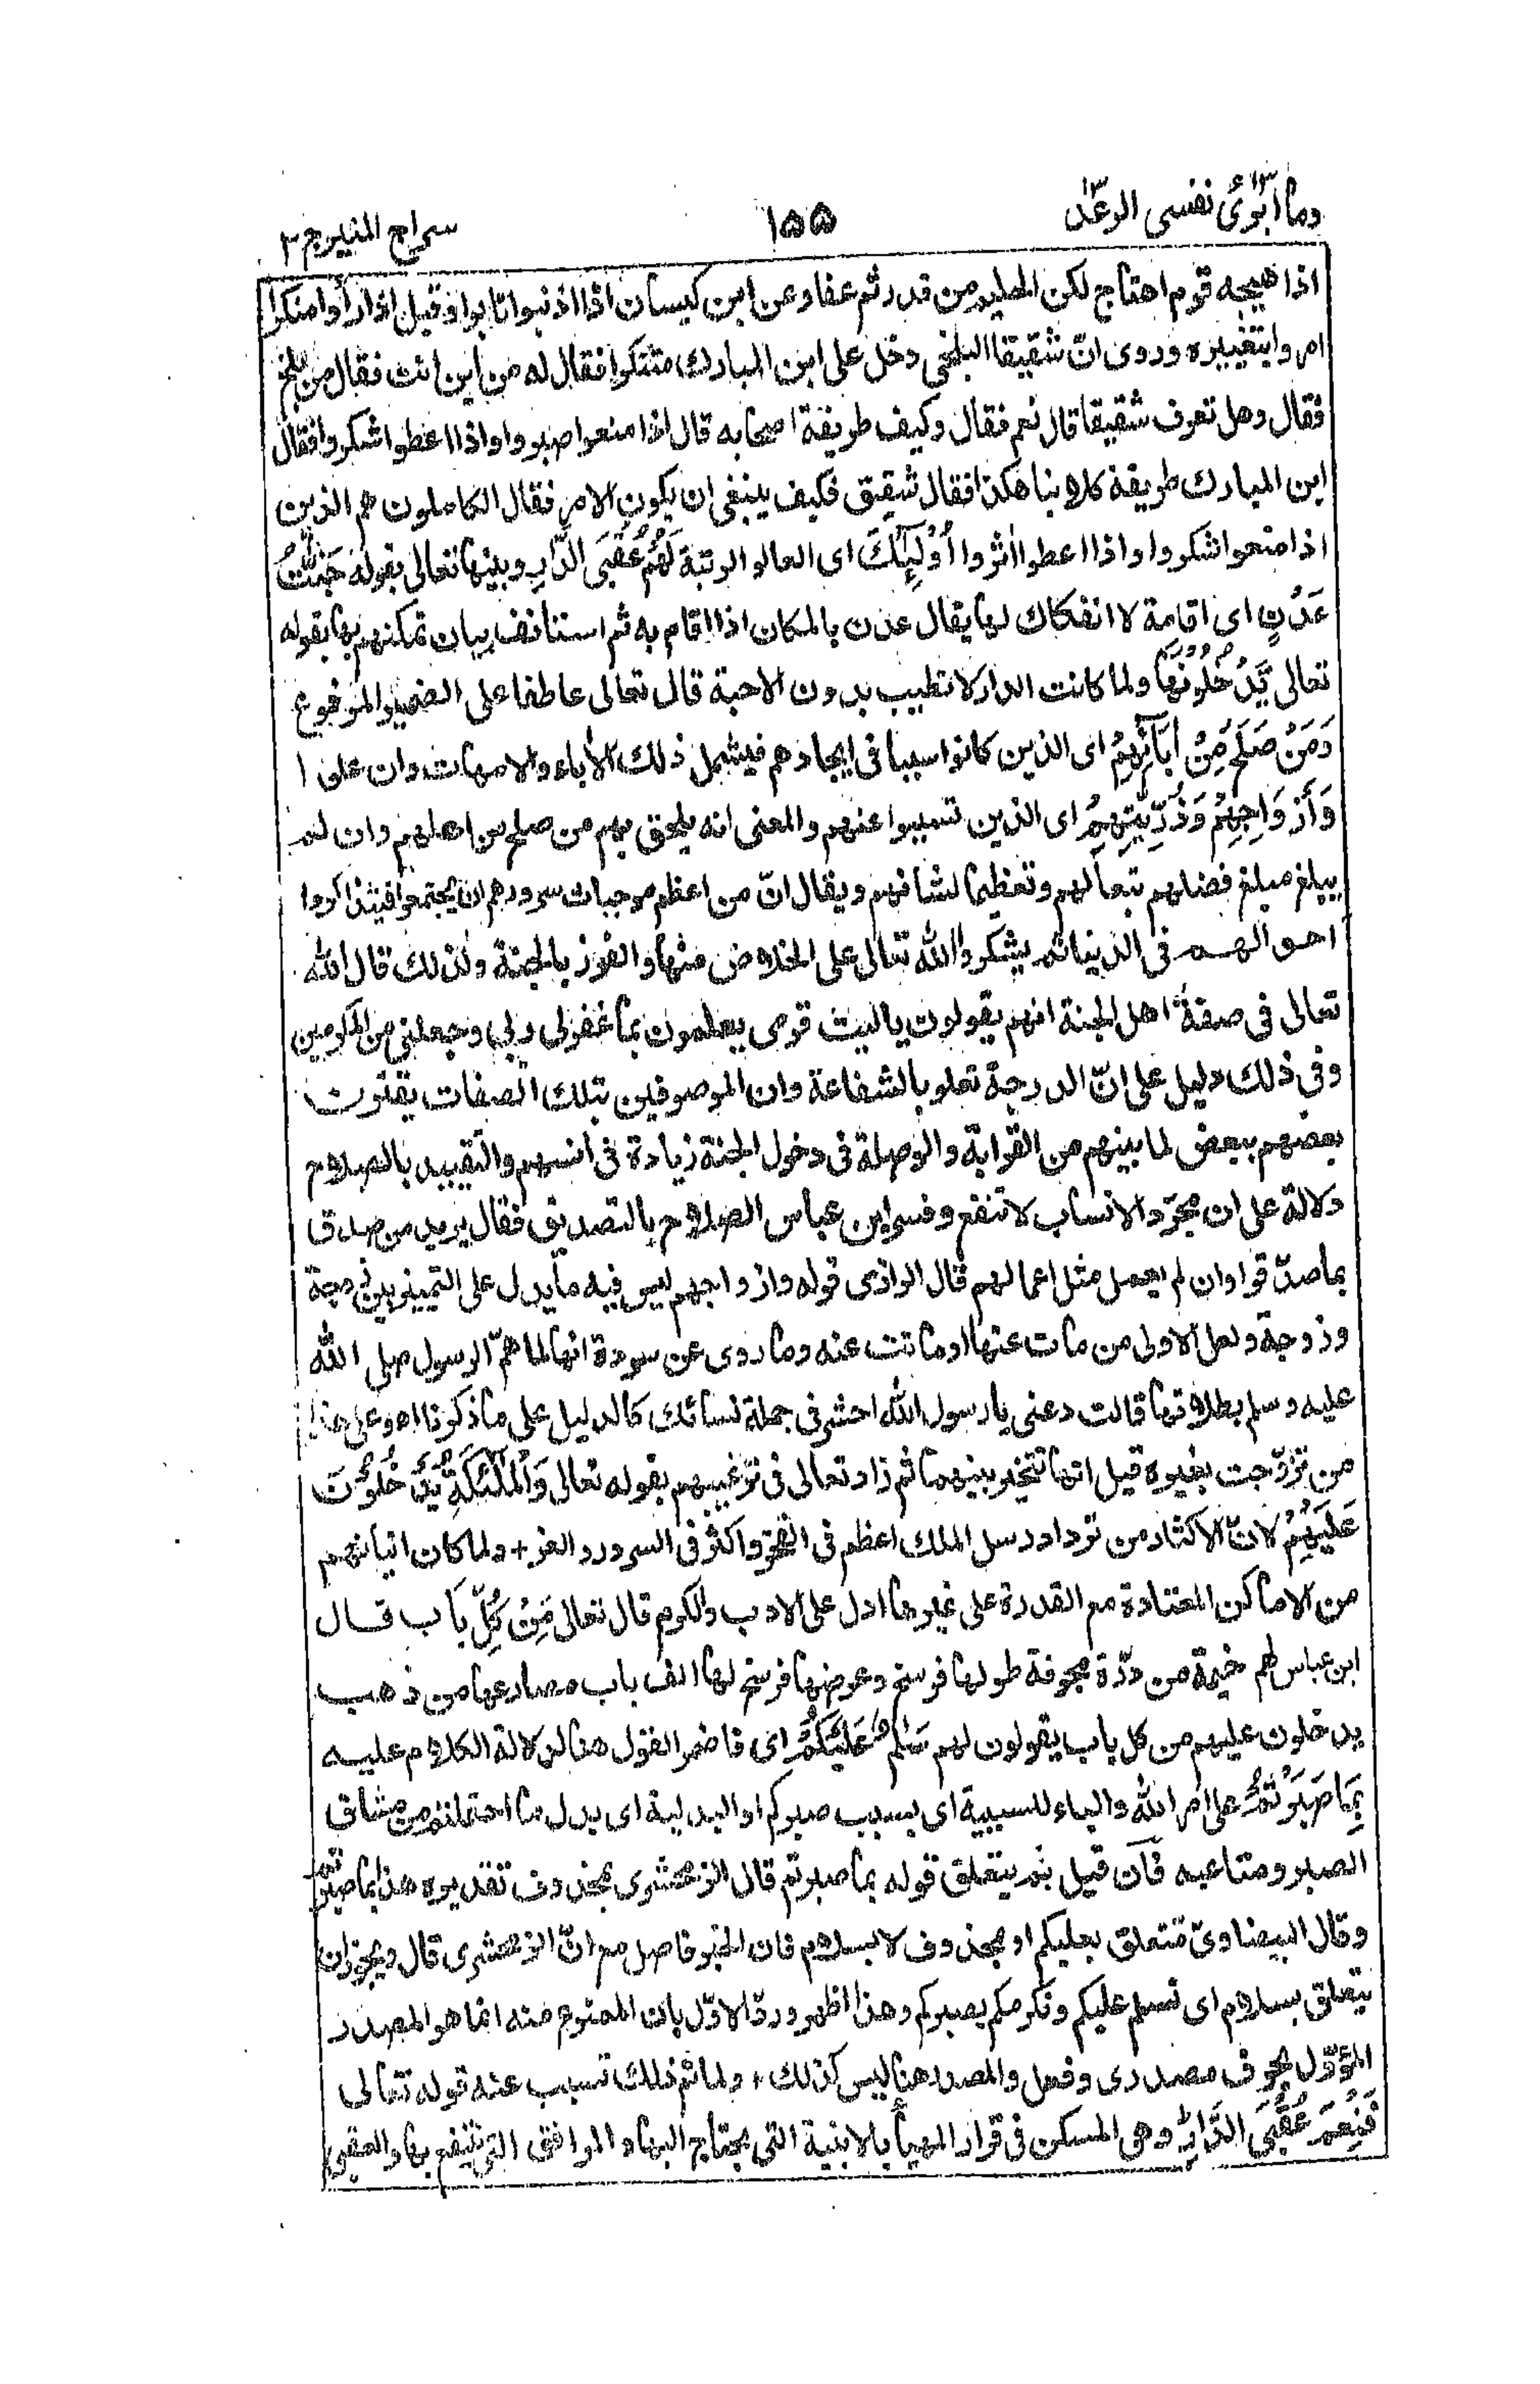 وما ابرئ نفسى ١٣ الرعد ١٣
١٥٥
سراج المنير ج ٢
اذا هيجه قوم اهتاج لكن الحليم من قدر ثم عفا وعن ابن كيسان اذا اذنبوا تابوا وقيل اذا رأوا منكرا
امروا بتغييره وروى انّ شقيقا البلخى دخل على ابن المبارك متنكرا فقال له من اين انت فقال من بلخ
فقال وهل تعرف شقيقا قال نعم فقال وكيف طريقة اصحابه قال اذا منعوا صبروا واذا اعطوا شكروا فقال
ابن المبارك طريقة كلابنا هكذا فقال شقيق فكيف ينبغى ان يكون الامر فقال الكاملون هم الذين
اذا منعوا شكروا واذا اعطوا اثروا أُولٰٓئِكَ اى العالو الرتبة لَهُمْ عُقْبَى الدَّارِ وبينها تعالى بقوله جَنّٰتُ
عَدْنٍ اى اقامة لا انفكاك لها يقال عدن بالمكان اذا اقام به ثم استانف بيان تمكنهم بها بقوله
تعالى يَّدْخُلُوْنَهَا ولما كانت الدار لا تطيب بدون الاحبة قال تعالى عاطفا على الضمير المرفوع
وَمَنْ صَلَحَ مِنْ اٰبَآئِهِمْ اى الذين كانوا سببا فى ايجادهم فيشمل ذلك الأباء والامهات وان علوا
وَأَزْوَاجِهِمْ وَذُرِّيّٰتِهِمْ اى الذين تسببوا عنهم والمعنى انه يلحق بهم من صلح من اهلهم وان لم
يبلغ مبلغ فضلهم تبعا لهم وتعظيما لشانهم ويقال انّ من اعظم موجبات سرورهم ان يجتمعوا فيتذاكروا
احوالهم فى الدنيا ثم يشكروا الله تعالى على الخلاص منها والفوز بالجنة ولذلك قال الله
تعالى فى صفة اهل الجنة انهم يقولون ياليت قومى يعلمون بما غفرلى ربى وجعلنى من المكرمين
وفى ذلك دليل على انّ الدرجة تعلو بالشفاعة وان الموصوفين بتلك الصفات يقترن
بعضهم ببعض لما بينهم من القرابة والوصلة فى دخول الجنة زيادة فى انسهم والتقييد بالصلاح
دلالة على ان مجرّد الانساب لا تنفع وفسر ابن عباس الصلاح بالتصديق فقال يريد من صدق
بما صدّقوا وان لم يعمل مثل اعمالهم قال الرازى قوله وازواجهم ليس فيه ما يدل على التمييز بين زوجة
وزوجة ولعل الاولى من مات عنها او ماتت عنه وما روى عن سودة انها لما همّ الرسول صلى الله
عليه وسلم بطلاقها قالت دعنى يا رسول الله احشر فى جملة نسائك كالدليل على ما ذكرنا اه وعلى هذا
من تزوّجت بغيره قيل انها تتخير بينهما ثم زاد تعالى فى ترغيبهم بقوله تعالى وَالْمَلٰٓئِكَةُ يَدْخُلُوْنَ
عَلَيْهِمْ لانّ الاكثار من ترداد رسل الملك اعظم فى الفخر واكثر فى السرور والعز + ولما كان اتيانهم
من الاماكن المعتادة مع القدرة على غيرها ادل على الادب والكرم قال تعالى مِّنْ كُلِّ بَابٍ قال
ابن عباس لهم خيمة من درّة مجوفة طولها فرسخ وعرضها فرسخ لها الف باب مصارعها من ذهب
يدخلون عليهم من كل باب يقولون لهم سَلٰمٌ عَلَيْكُمْ اى فاضمر القول هنا لدلالة الكلام عليه
بِمَا صَبَرْتُمْ على امر الله والباء للسببية اى بسبب صبركم او البدلية اى بدل ما احتملتم من مشاق
الصبر ومتاعبه فان قيل بم يتعلق قوله بما صبرتم قال الزمخشرى بمحذوف تقديره هذا بما صبرتم
وقال البيضاوىّ متعلق بعليكم او بمحذوف لا بسلام فان الخبر فاصل مع انّ الزمخشرى قال ويجوز ان
يتعلق بسلام اى نسلم عليكم ونكرمكم بصبركم وهذا اظهر وردّ الاوّل بان الممنوع منه انما هو المصدر
المؤوّل بحرف مصدرى وفعل والمصدر هنا ليس كذلك + ولما تم ذلك تسبب عنه قوله تعالى
فَنِعْمَ عُقْبَى الدَّارِ وهى المسكن فى قرار المهيأ بالابنية التى يحتاج اليها والمرافق التى ينتفع بها والعقبى